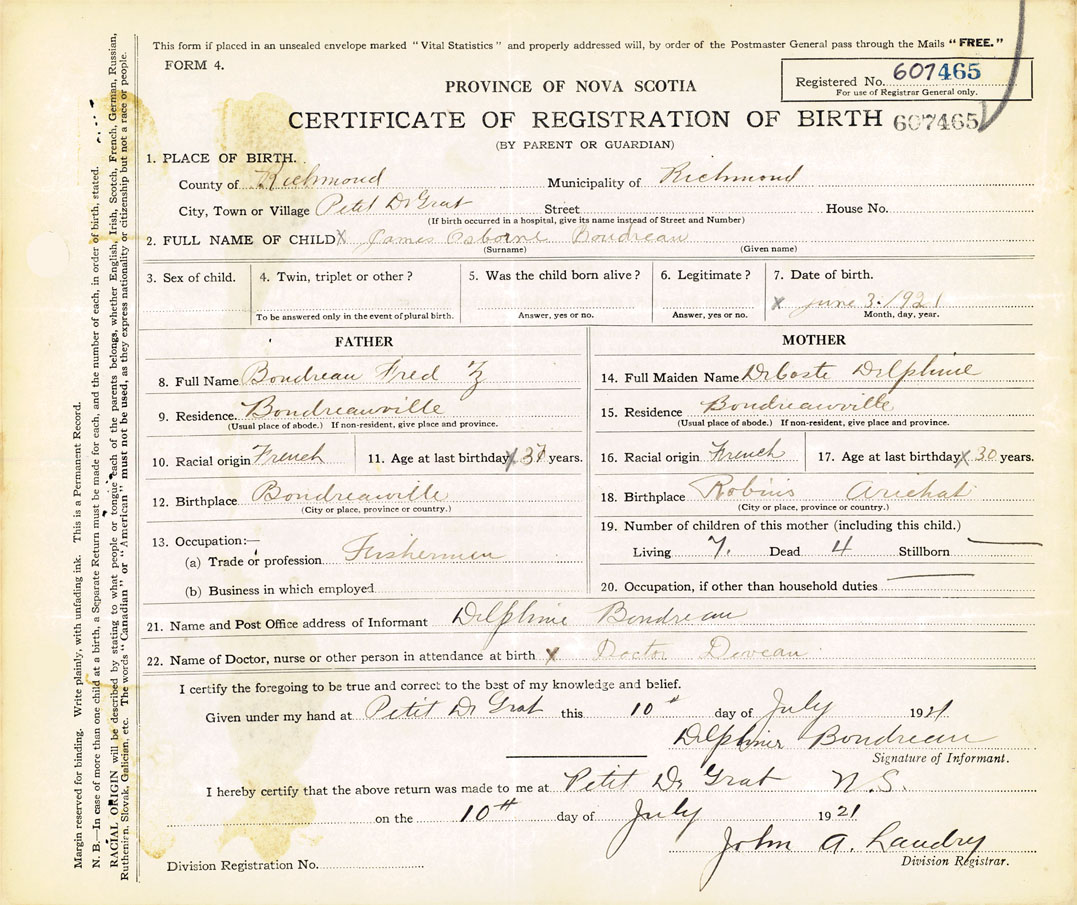 This form if placed in an unsealed envelope marked "Vital Statistics" and properly addressed will, by order of the Postmaster General pass through the Mails "FREE."
FORM 4.
Registered No. 607465
For use of Registrar General only.
PROVINCE OF NOVA SCOTIA
CERTIFICATE OF REGISTRATION OF BIRTH 607465
(BY PARENT OR GUARDIAN)
1. PLACE OF BIRTH.
County of Richmond Municipality of Richmond
City, Town or Village Petit De Grat Street House No.
(If birth occurred in a hospital, give its name instead of Street and Number)
2. FULL NAME OF CHILD X James Osborne Boudreau
(Surname) (Given name)
3. Sex of child. 4. Twin, triplet or other? 5. Was the child born alive? 6. Legitimate? 7. Date of birth.
X June 3. 1921
To be answered only in the event of plural birth. Answer, yes or no. Answer, yes or no. Month, day, year.
FATHER
8. Full Name Boudreau Fred
9. Residence. Boudreauville
(Usual place of abode.) If non-resident, give place and province.
10. Racial origin French 11. Age at last birthday X 37 years.
12. Birthplace Boudreauville
(City or place, province or country.)
13. Occupation:—
(a) Trade or profession Fishermen
(b) Business in which employed
MOTHER
14. Full Maiden Name DeCoste Delphine
15. Residence Boudreauville
(Usual place of abode.) If non-resident, give place and province.
16. Racial origin French 17. Age at last birthday X 30 years.
18. Birthplace Robins Arichat
(City or place, province or country.)
19. Number of children of this mother (including this child.)
Living 7. Dead 4 Stillborn —
20. Occupation, if other than household duties —
21. Name and Post Office address of Informant Delphine Boudreau
22. Name of Doctor, nurse or other person in attendance at birth X Doctor Deveau
I certify the foregoing to be true and correct to the best of my knowledge and belief.
Given under my hand at Petit De Grat this 10th day of July 1921
Delphine Boudreau
Signature of Informant.
I hereby certify that the above return was made to me at Petit De Grat N.S.
on the 10th day of July 1921
John A. Landry
Division Registrar.
Division Registration No.
Margin reserved for binding. Write plainly, with unfading ink. This is a Permanent Record.
N. B.—In case of more than one child at a birth, a Separate Return must be made for each, and the number of each, in order of birth, stated.
RACIAL ORIGIN will be described by stating to what people or tongue each of the parents belongs, whether English, Irish, Scotch, French, German, Russian,
Ruthenirn, Slovak, Galician, etc. The words "Canadian" or "American" must not be used, as they express nationality or citizenship but not a race or people.